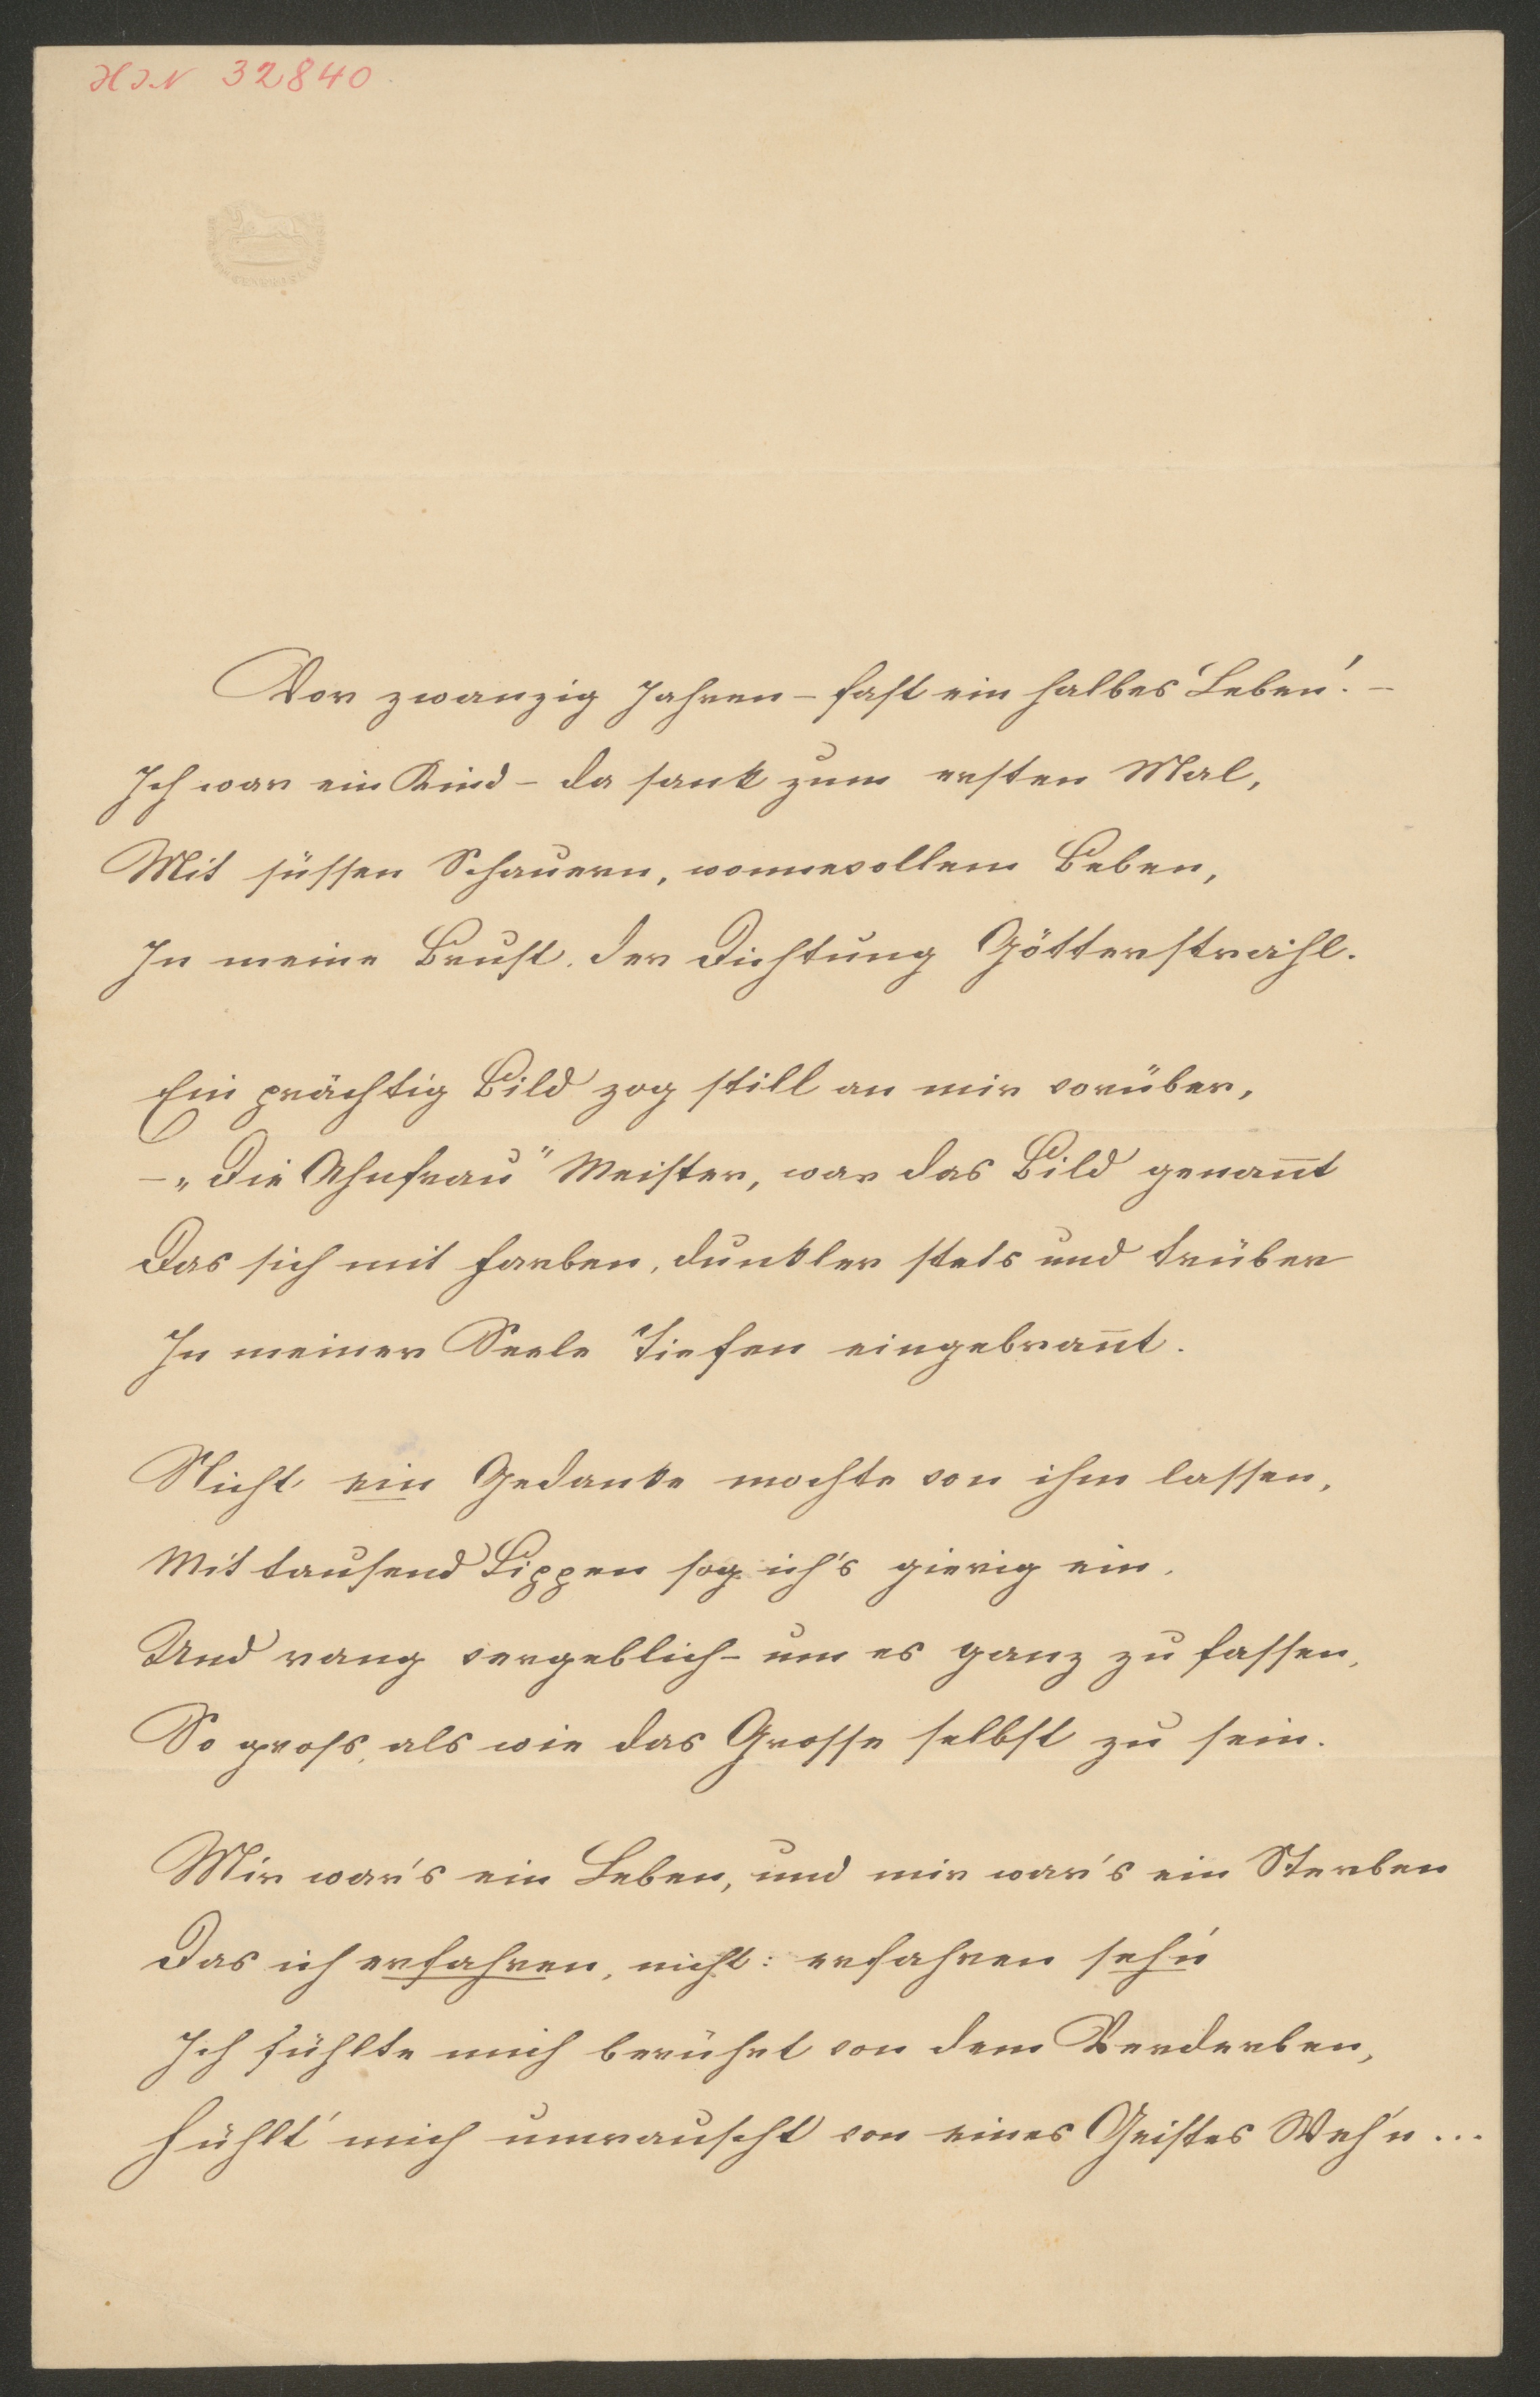 HIN 32840
Vor zwanzig Jahren – fast ein halbes Leben! –
Ich war ein Kind – da sank zum ersten Mal,
Mit süssen Schauern, wonnevollem Beben,
In meine Brust, der Dichtung Götterstrahl.
Ein prächtig Bild zog still an mir vorüber,
– „Die Ahnfrau" Meister, war das Bild genan̄t
Das sich mit Farben, dunkler stets und trüber
In meiner Seele Tiefen eingebran̄t.
Nicht ein Gedanke mochte von ihm lassen,
Mit tausend Lippen sog ich's gierig ein,
Und rang vergeblich – um es ganz zu fassen,
So gross, als wie das Grosse selbst zu sein.
Mir war's ein Leben, und mir war's ein Sterben
Das ich erfahren, nicht: erfahren seh'n
Ich fühlte mich berührt von dem Verderben,
Fühlt' mich umrauscht von eines Geistes Weh'n ...